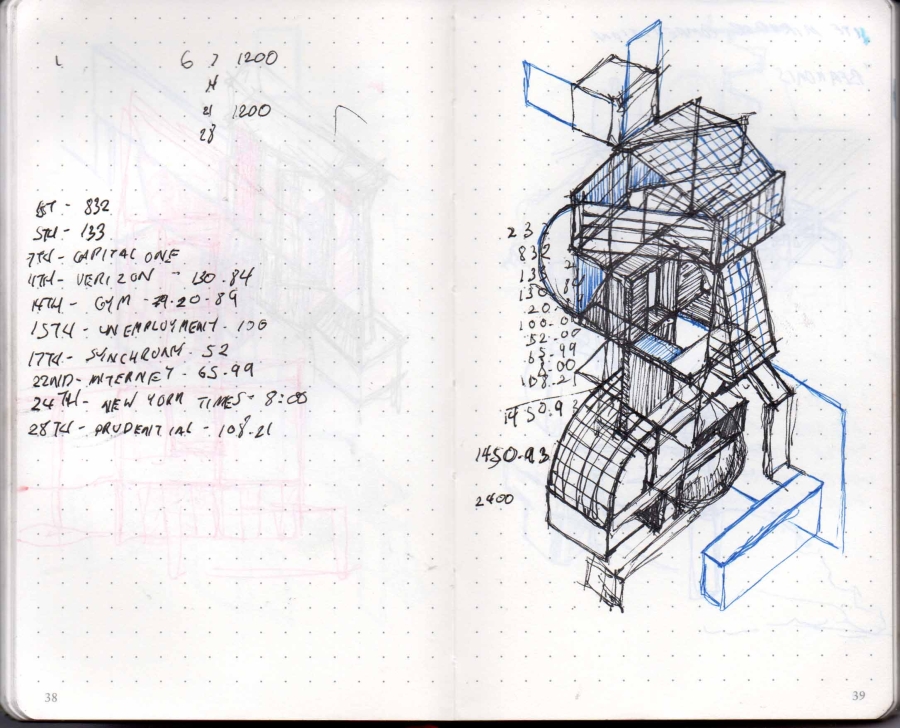 6 7 1200
14
21 1200
28
1ST - 832
5TH - 133
7TH - CAPITAL ONE
11TH - VERIZON - 130.84
14TH - GYM - 20.89
15TH - UNEMPLOYMENT - 100
17TH - SYNCHRONY - 52
22ND - INTERNET - 65.99
24TH - NEW YORK TIMES - 8:00
28TH - PRUDENTIAL - 108.21
23
832
133
130.84
20.
100.00
52.00
65.99
108.21
1450.93
1450.93
2400
38
39